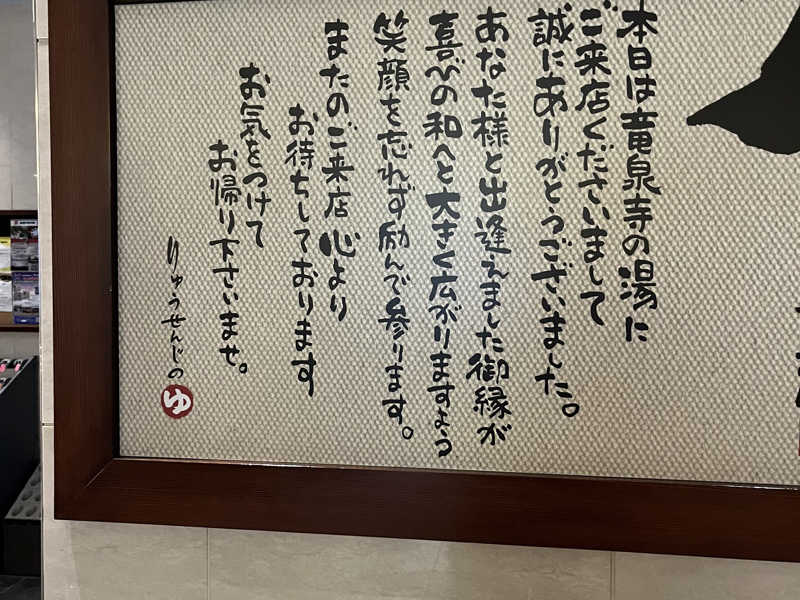 本日は竜泉寺の湯に
ご来店くださいまして
誠にありがとうございました。
あなた様と出逢えました御縁が
喜びの和へと大きく広がりますよう
笑顔を忘れず励んで参ります。
またのご来店心より
お待ちしております
お気をつけて
お帰り下さいませ。
りゅうせんじの
ゆ